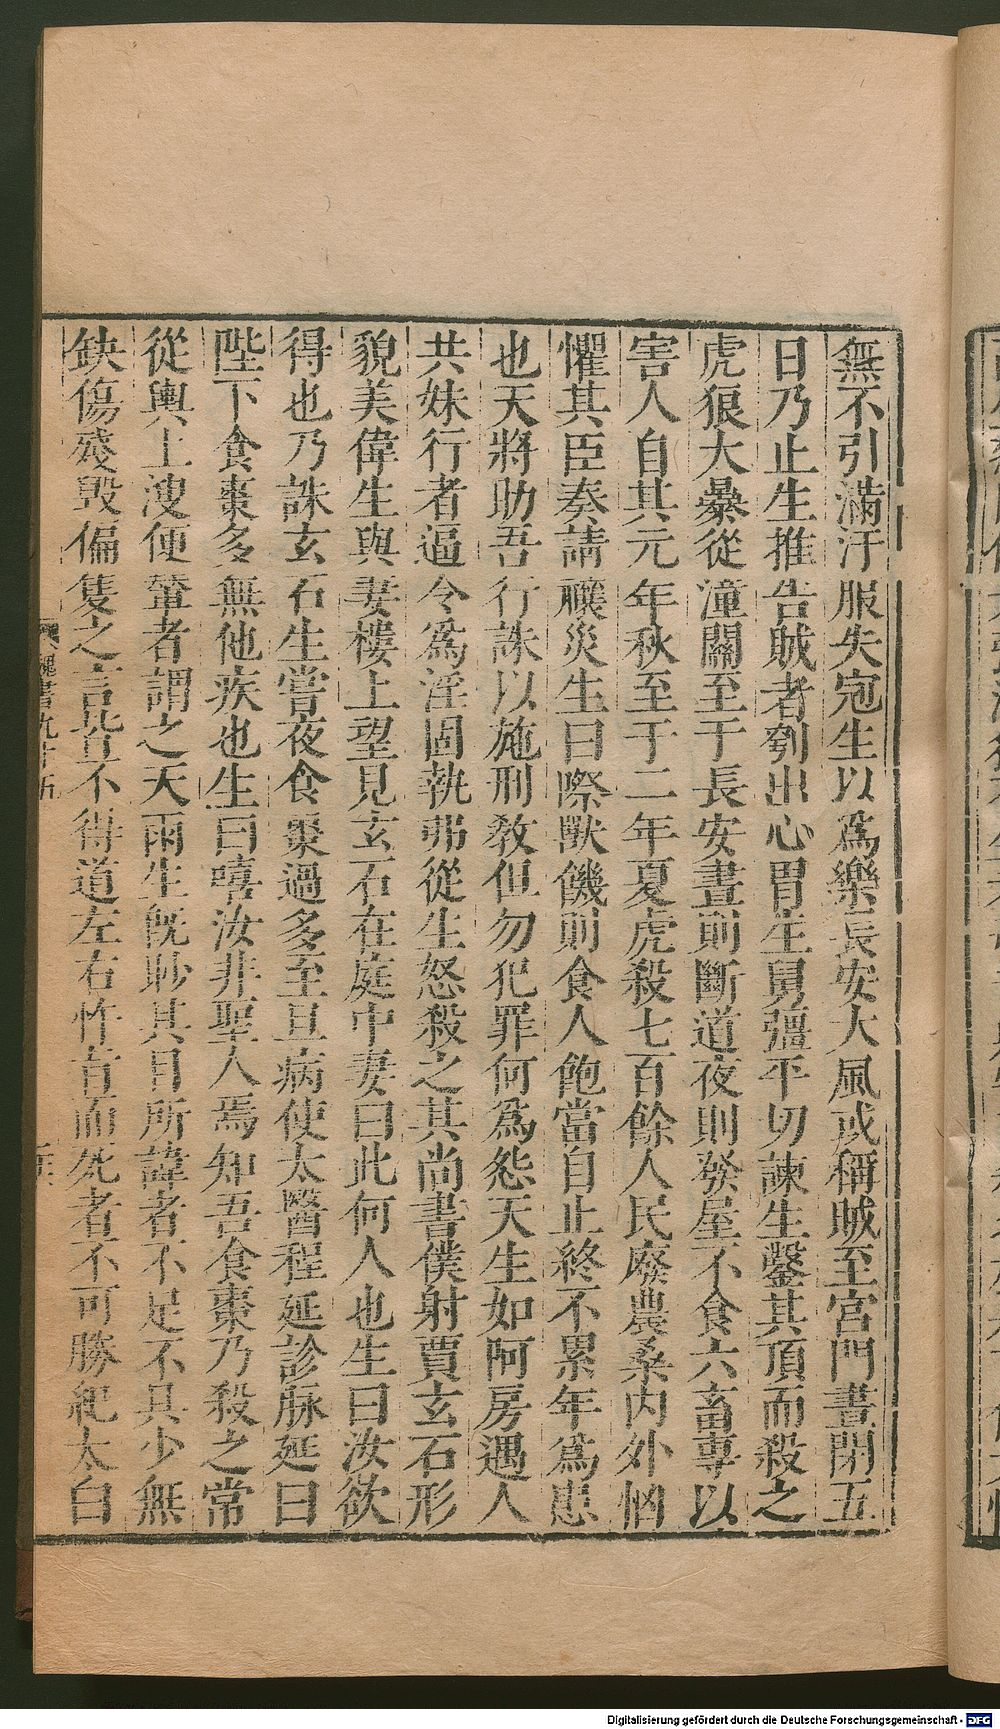 無不引滿汙服失寃生以爲樂長安大風或稱賊至宮門晝閉五
日乃止生推告賊者刳出心胃生舅彊平切諫生鑿其頂而殺之
虎狼大暴從潼關至于長安晝則斷道夜則發屋不食六畜專以
害人自其元年秋至于二年夏虎殺七百餘人民廢農桑内外忷
懼其臣奏請禳災生曰際獸饑則食人飽當自止終不累年爲患
也天將助吾行誅以施刑敎但勿犯罪何爲怨天生如阿房遇人
共妹行者逼令爲淫固執弗從生怒殺之其尚書僕射賈玄石形
貌美偉生與妻樓上望見玄石在庭中妻曰此何人也生曰汝欲
得也乃誅玄石生嘗夜食棗過多至旦病使太醫程延診脉延曰
陛下食棗多無他疾也生曰嘻汝非聖人焉知吾食棗乃殺之常
從輿上溲便輦者謂之天雨生旣眇其目所諱者不足不具少無
缺傷殘毁偏隻之言皆不得道左右忤旨而死者不可勝紀太白
魏書九十五
Digitalisierung gefördert durch die Deutsche Forschungsgemeinschaft - DFG